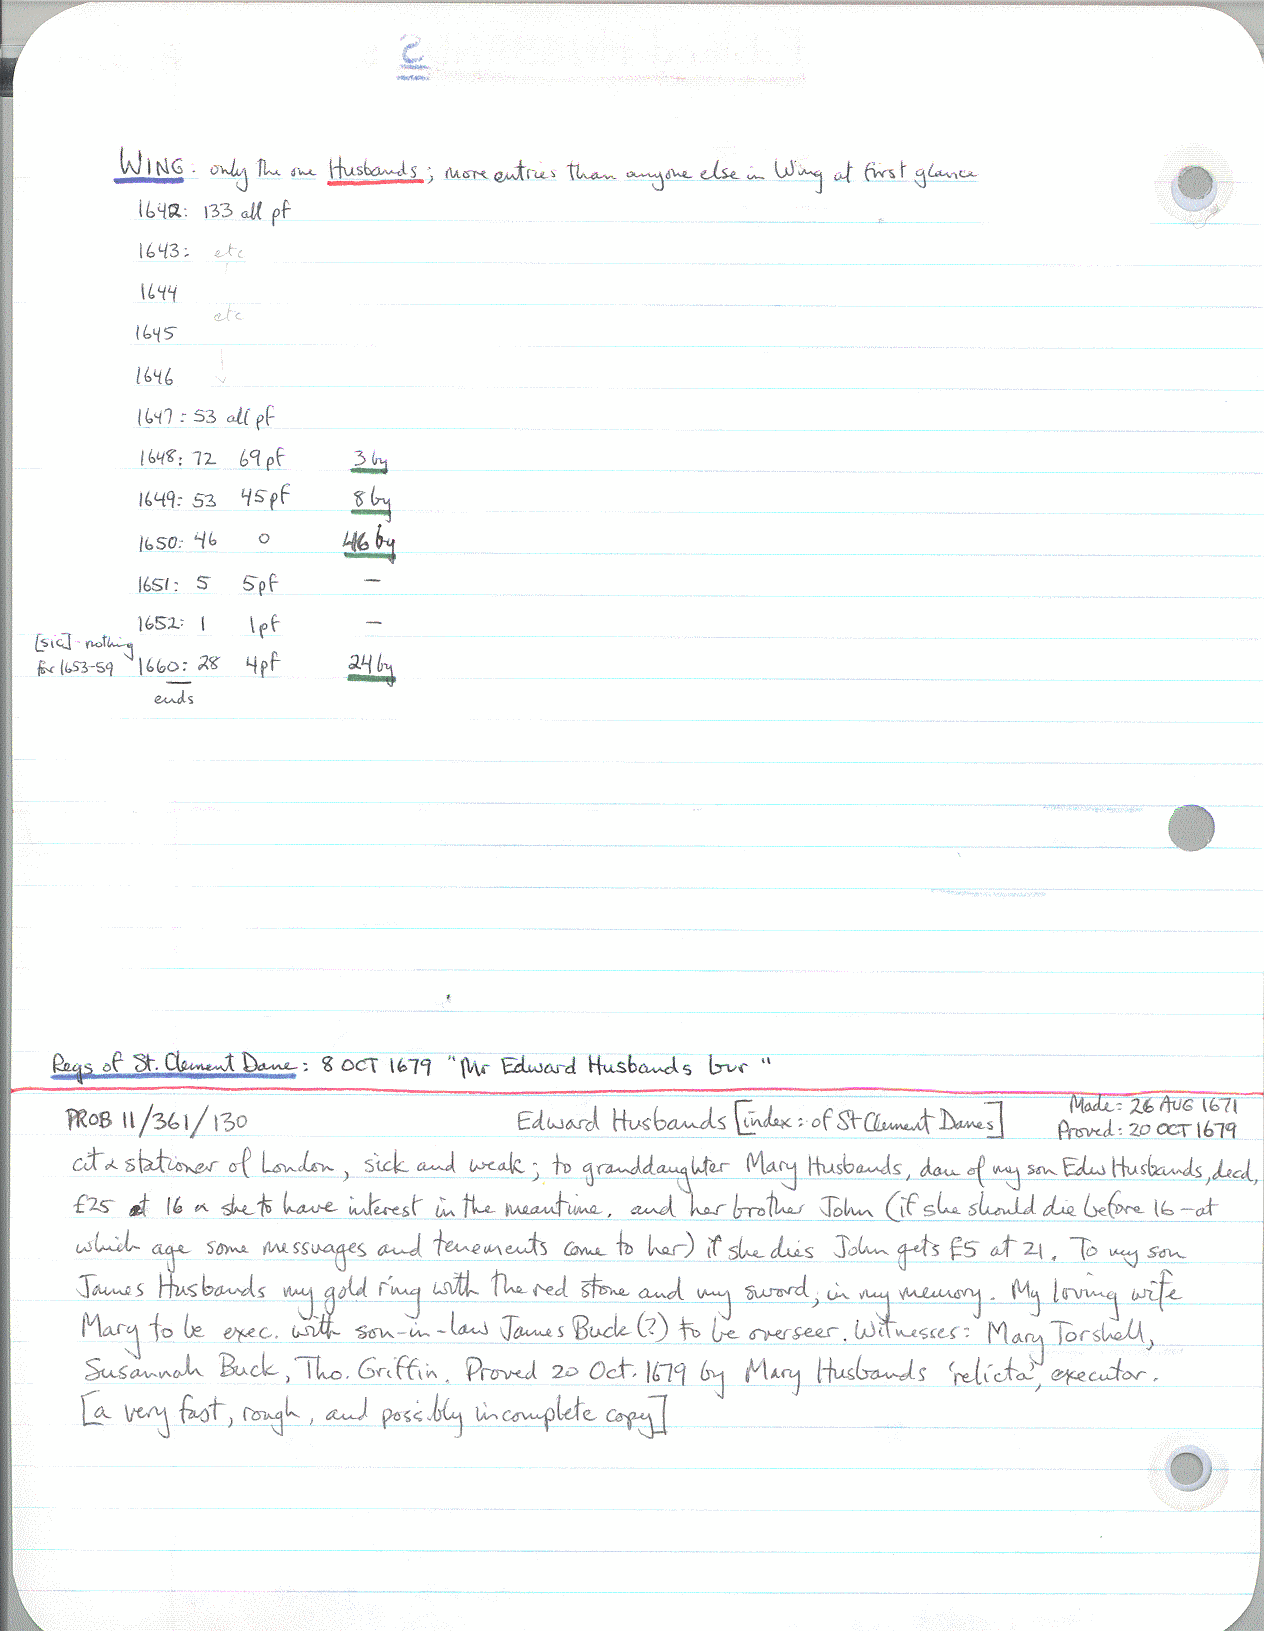 WING: only the one Husbands; more entries than anyone else in Wing at first glance
1642: 133 all pf
1643: etc
1644
etc
1645
1646
1647: 53 all pf
1648: 72 69pf 3 by
1649: 53 45pf 8 by
1650: 46 0 46 by
1651: 5 5pf —
1652: 1 1pf —
[sic] - nothing
for 1653-59 1660: 28 4pf 24 by
ends
Regs of St. Clement Dane: 8 OCT 1679 "Mr Edward Husbands bur"
PROB 11/361/130 Edward Husbands [index: of St Clement Danes] Made: 26 AUG 1671
Proved: 20 OCT 1679
cit & stationer of London, sick and weak; to granddaughter Mary Husbands, dau of my son Edw Husbands, decd,
£25 at 16 & she to have interest in the meantime, and her brother John (if she should die before 16 - at
which age some messuages and tenements come to her) if she dies John gets £5 at 21. To my son
James Husbands my gold ring with the red stone and my sword, in my memory. My loving wife
Mary to be exec. with son-in-law James Buck (?) to be overseer. Witnesses: Mary Torshell,
Susannah Buck, Tho. Griffin. Proved 20 Oct. 1679 by Mary Husbands 'relicta', executor.
[a very fast, rough, and possibly incomplete copy]